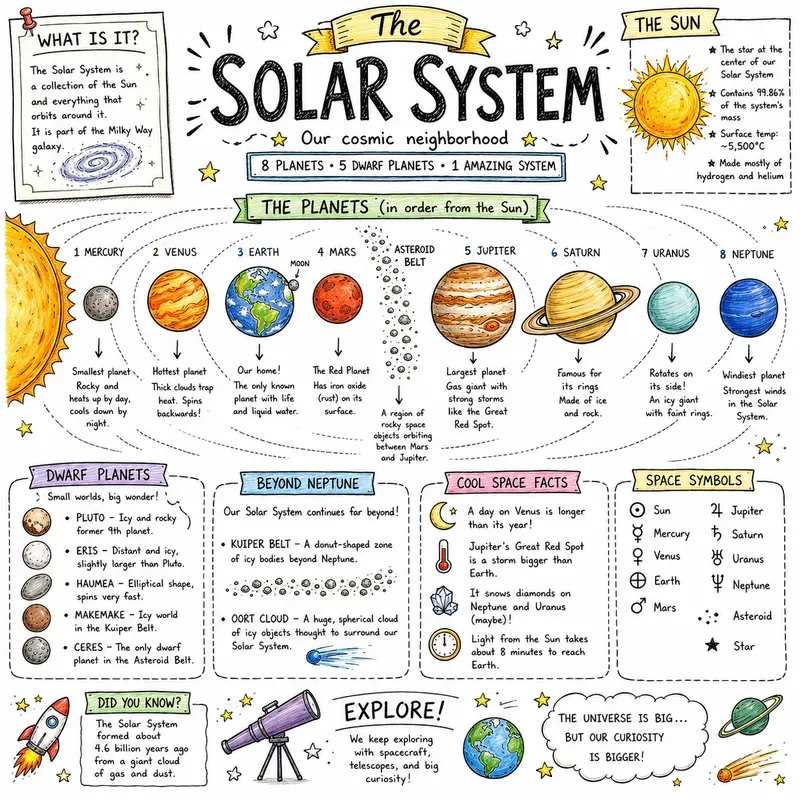 WHAT IS IT?
The Solar System is
a collection of the Sun
and everything that
orbits around it.
It is part of the Milky Way
galaxy.
The
SOLAR SYSTEM
Our cosmic neighborhood
8 PLANETS • 5 DWARF PLANETS • 1 AMAZING SYSTEM
THE SUN
The star at the
center of our
Solar System
Contains 99.86%
of the system's
mass
Surface temp:
~5,500°C
Made mostly of
hydrogen and helium
THE PLANETS (in order from the Sun)
1 MERCURY
Smallest planet
Rocky and
heats up by day,
cools down by
night.
2 VENUS
Hottest planet
Thick clouds trap
heat. Spins
backwards!
3 EARTH
MOON
Our home!
The only known
planet with life
and liquid water.
4 MARS
The Red Planet
Has iron oxide
(rust) on its
surface.
ASTEROID
BELT
A region of
rocky space
objects orbiting
between Mars
and Jupiter.
5 JUPITER
Largest planet
Gas giant with
strong storms
like the Great
Red Spot.
6 SATURN
Famous for
its rings
Made of ice
and rock.
7 URANUS
Rotates on
its side!
An icy giant
with faint rings.
8 NEPTUNE
Windiest planet
Strongest winds
in the Solar
System.
DWARF PLANETS
Small worlds, big wonder!
• PLUTO – Icy and rocky
former 9th planet.
• ERIS – Distant and icy,
slightly larger than Pluto.
• HAUMEA – Elliptical shape,
spins very fast.
• MAKEMAKE – Icy world
in the Kuiper Belt.
• CERES – The only dwarf
planet in the Asteroid Belt.
BEYOND NEPTUNE
Our Solar System continues far beyond!
• KUIPER BELT – A donut-shaped zone
of icy bodies beyond Neptune.
• OORT CLOUD – A huge, spherical cloud
of icy objects thought to surround our
Solar System.
COOL SPACE FACTS
A day on Venus is longer
than its year!
Jupiter's Great Red Spot
is a storm bigger than
Earth.
It snows diamonds on
Neptune and Uranus
(maybe!)
Light from the Sun takes
about 8 minutes to reach
Earth.
SPACE SYMBOLS
☉ Sun
☿ Mercury
♀ Venus
⊕ Earth
♂ Mars
♃ Jupiter
♄ Saturn
♅ Uranus
♆ Neptune
Asteroid
★ Star
DID YOU KNOW?
The Solar System
formed about
4.6 billion years ago
from a giant cloud
of gas and dust.
EXPLORE!
We keep exploring
with spacecraft,
telescopes, and big
curiosity!
THE UNIVERSE IS BIG...
BUT OUR CURIOSITY
IS BIGGER!